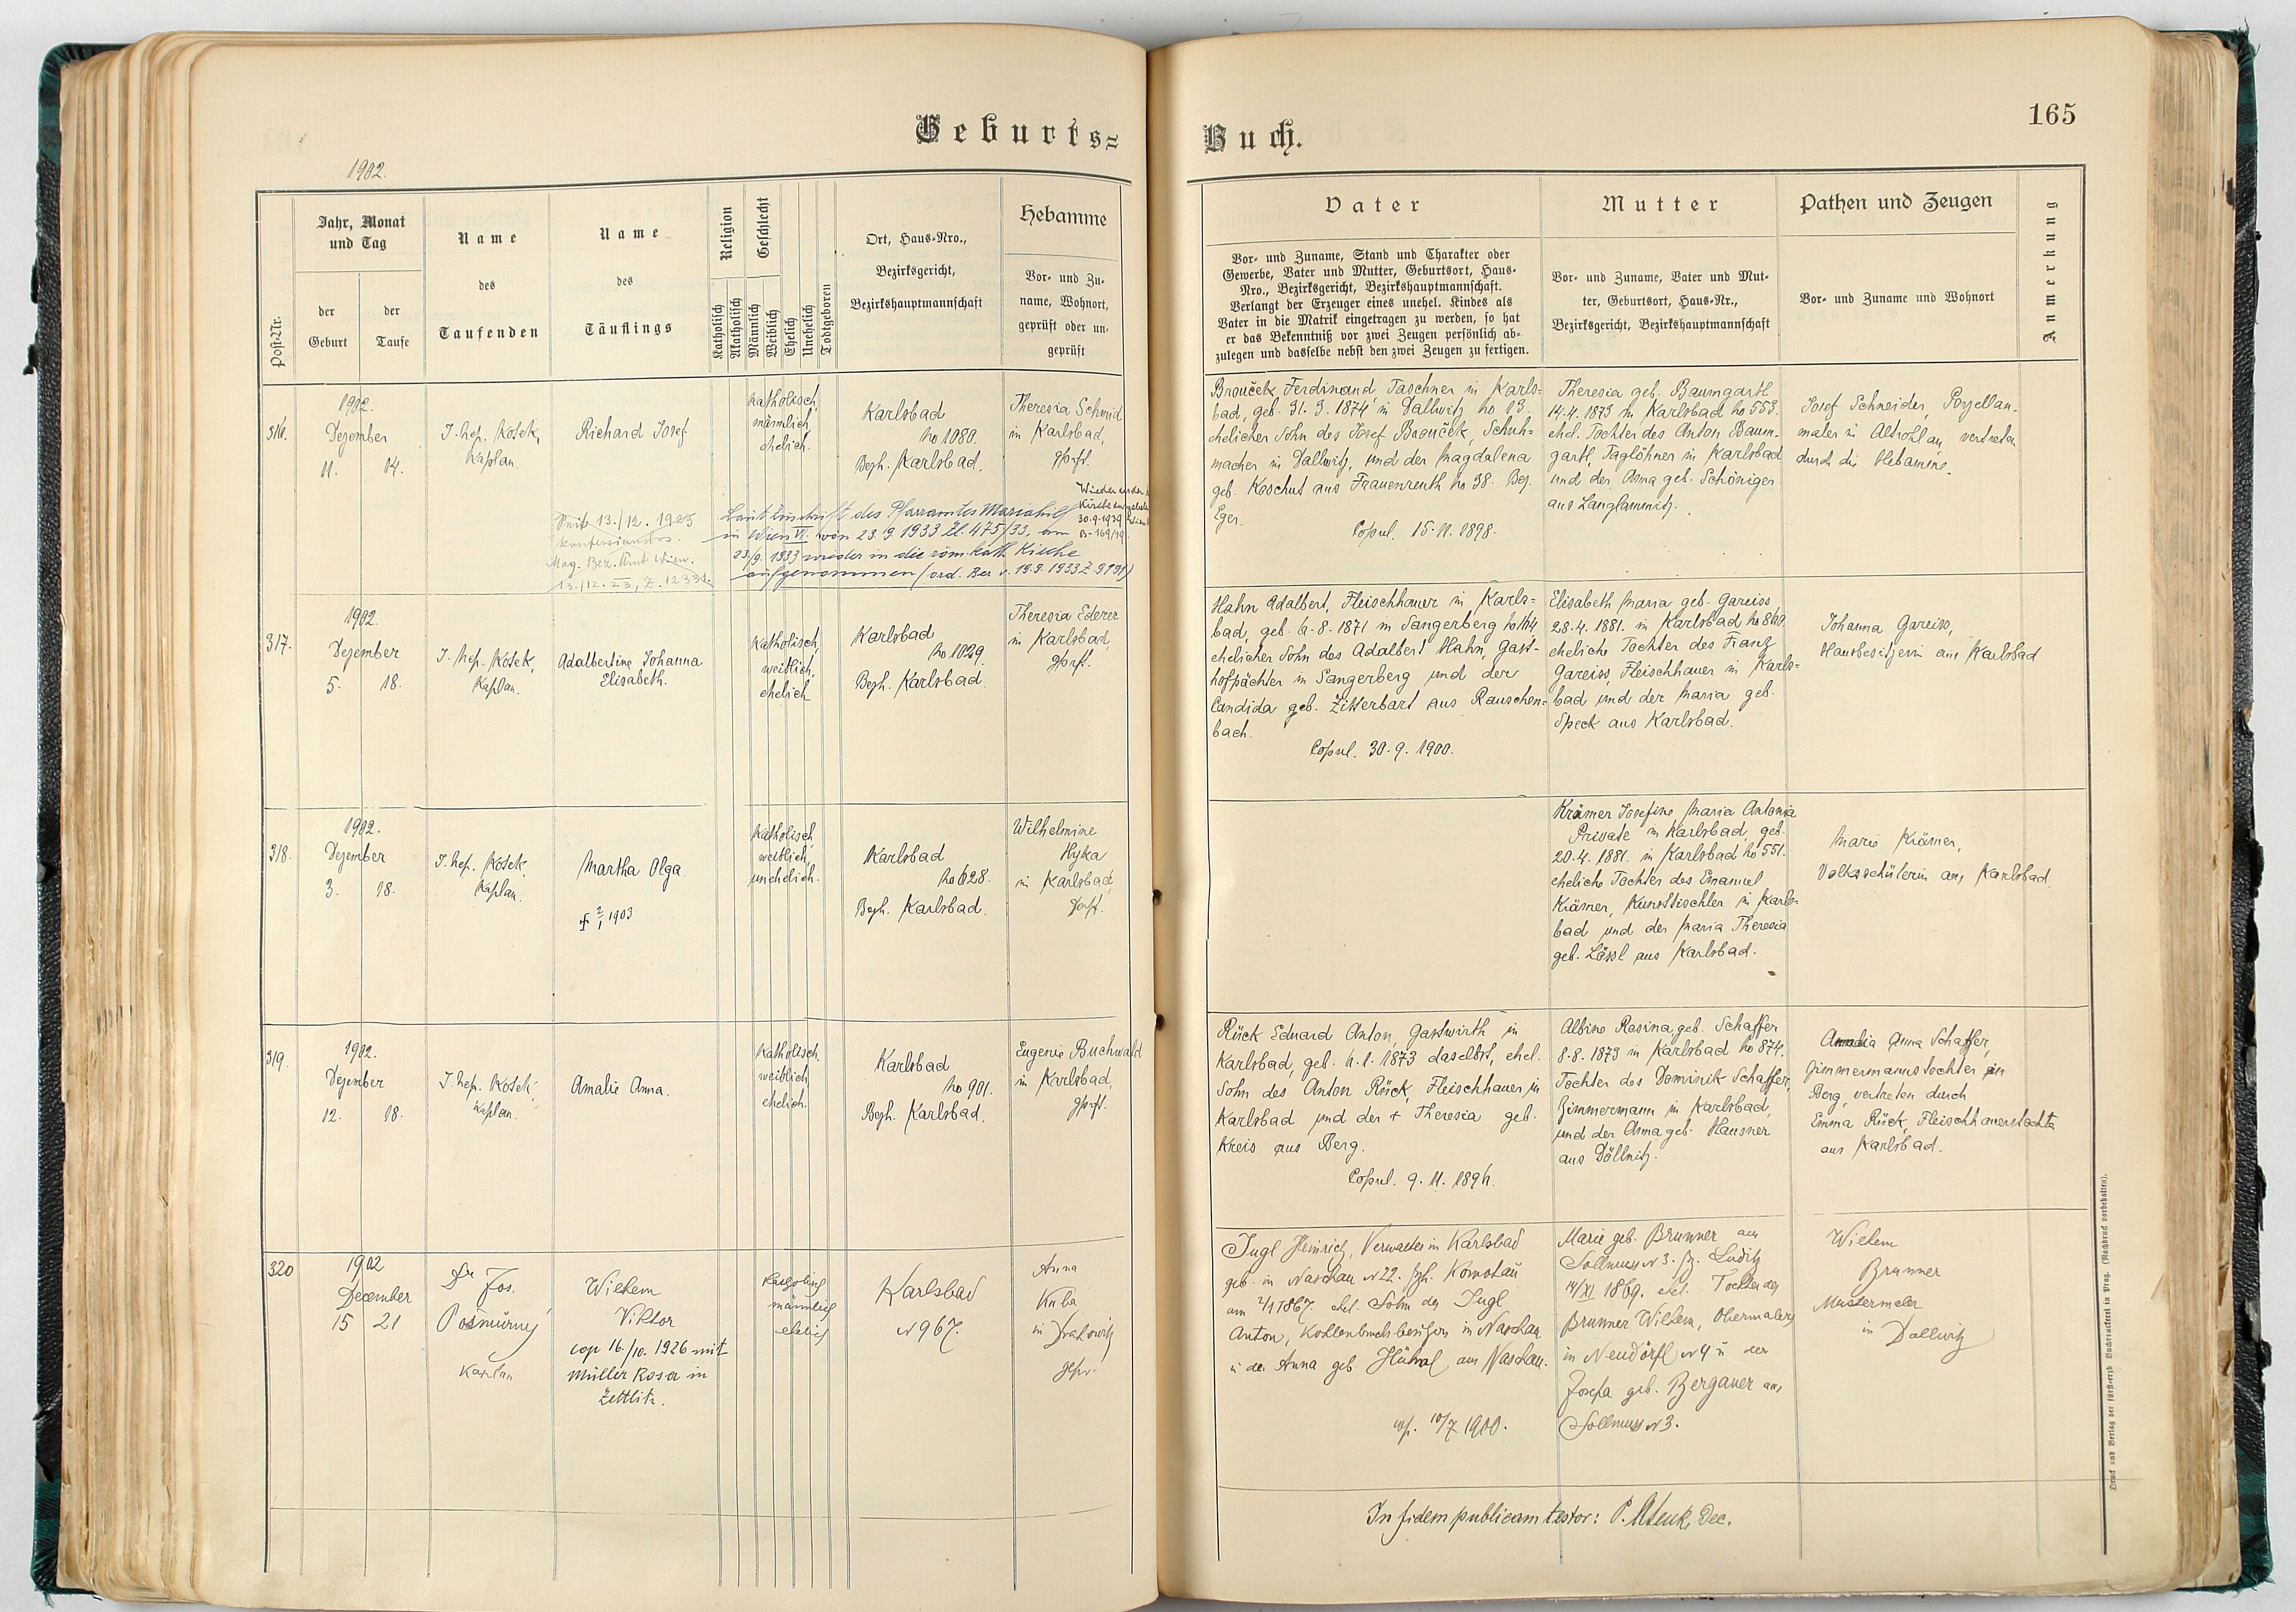 Geburts=
Buch.
165
1902.
Post-Nr.
Jahr, Monat
und Tag
der
Geburt
der
Taufe
Name
des
Taufenden
Name
des
Täuflings
Religion
Katholisch
Akatholisch
Geschlecht
Männlich
Weiblich
Ehelich
Unehelich
Todtgeboren
Ort, Haus=Nro.,
Bezirksgericht,
Bezirkshauptmannschaft
Hebamme
Vor- und Zu-
name, Wohnort,
geprüft oder un-
geprüft
Vater
Vor- und Zuname, Stand und Charakter oder
Gewerbe, Vater und Mutter, Geburtsort, Haus-
Nro., Bezirksgericht, Bezirkshauptmannschaft.
Verlangt der Erzeuger eines unehel. Kindes als
Vater in die Matrik eingetragen zu werden, so hat
er das Bekenntniß vor zwei Zeugen persönlich ab-
zulegen und dasselbe nebst den zwei Zeugen zu fertigen.
Mutter
Vor- und Zuname, Vater und Mut-
ter, Geburtsort, Haus-Nr.,
Bezirksgericht, Bezirkshauptmannschaft
Pathen und Zeugen
Vor- und Zuname und Wohnort
Anmerkung
316.
1902.
Dezember
11. 14.
J. Nep. Kosek,
Kaplan.
Richard Josef
katholisch,
männlich,
ehelich.
Karlsbad
No 1080.
Bezh. Karlsbad.
Theresia Schmid
in Karlsbad,
gprft.
Seit 13./12. 1923
konfessionslos.
Mag. Bez. Amt Wien.
13./12. 23, Z. 12331.
Laut Zuschrift des Pfarramtes Mariahilf
in Wien VI. von 23.9.1933 Zl. 475/33, am
23/9. 1933 wieder in die röm. kath. Kirche
aufgenommen (ord. Ber v. 19.9.1933 Z 9191)
Wieder aus der
Kirche
30.9.1939
B-169/19.
Brouček Ferdinand Taschner in Karls=
bad, geb. 31. 3. 1874 in Dallwitz No 13.
ehelicher Sohn des Josef Brouček, Schuh-
macher in Dallwitz, und der Magdalena
geb. Koschut aus Frauenreuth No 38. Bez.
Eger.
Copul. 15.11.1898.
Theresia geb. Baumgartl
14.4. 1873 in Karlsbad No 553.
ehel. Tochter des Anton Baum-
gartl, Taglöhner in Karlsbad
und der Anna geb. Schöniger
aus Langlammitz.
Josef Schneider, Porzellan-
maler in Altrohlau, vertreten
durch die Hebamme.
317.
1902.
Dezember
5. 18.
J. Nep. Kosek,
Kaplan.
Adalbertine Johanna
Elisabeth.
Katholisch,
weiblich,
ehelich
Karlsbad
No 1029.
Bezh. Karlsbad.
Theresia Ederer
in Karlsbad,
gprft.
Hahn Adalbert, Fleischhauer in Karls=
bad, geb. 6. 8. 1871 in Sangerberg No 164
ehelicher Sohn des Adalbert Hahn, Gast-
hofpächter in Sangerberg und der
Candida geb. Zitterbart aus Rauschen=
bach.
Copul. 30. 9. 1900.
Elisabeth Maria geb. Gareiss
28.4. 1881. in Karlsbad No 860.
eheliche Tochter des Franz
Gareiss, Fleischhauer in Karls=
bad und der Maria geb.
Speck aus Karlsbad.
Johanna Gareiss,
Hausbesitzerin aus Karlsbad
318.
1902.
Dezember
3. 18.
J. Nep. Kosek,
Kaplan.
Martha Olga
† 2/1 1903
Katholisch,
weiblich,
unehelich.
Karlsbad
No 628.
Bezh. Karlsbad.
Wilhelmine
Hyka
in Karlsbad,
gprft.
Krämer Josefine Maria Antonia
Private in Karlsbad, geb.
20.4. 1881. in Karlsbad No 551.
eheliche Tochter des Emanuel
Krämer, Kunsttischler in Karls-
bad und der Maria Theresia
geb. Lössl aus Karlsbad.
Marie Krämer,
Volksschülerin aus Karlsbad.
319.
1902.
Dezember
12. 18.
J. Nep. Kosek,
Kaplan.
Amalie Anna.
Katholisch,
weiblich,
ehelich.
Karlsbad
No 901.
Bezh. Karlsbad.
Eugenie Buchwald
in Karlsbad,
gprft.
Rück Eduard Anton, Gastwirth in
Karlsbad, geb. 6. 1. 1873 daselbst, ehel.
Sohn des Anton Rück, Fleischhauer in
Karlsbad und der † Theresia geb.
Kreis aus Berg.
Copul. 9. 11. 1896.
Albine Rosina geb. Schaffer
8.8. 1873 in Karlsbad No 874.
Tochter des Dominik Schaffer,
Zimmermann in Karlsbad,
und der Anna geb. Hausner
aus Döllnitz.
Anna Schaffer,
Zimmermannstochter in
Berg, vertreten durch
Emma Rück, Fleischhauerstochter
aus Karlsbad.
320
1902
December
15 21
Dr Jos.
Pošmůrný
Kaplan
Wilhem
Viktor
cop 16./10. 1926 mit
Müller Rosa in
Zettlitz.
katholisch
männlich
ehelich
Karlsbad
N 967.
Anna
Kuba
in Drahowitz
Gpr.
Jugl Heinrich, Verwalter in Karlsbad
geb. in Naschau N 22. Bzh. Komotau
am 2/1 1867. ehel. Sohn des Jugl
Anton, Kohlenbruchbesitzers in Naschau
u der Anna geb. aus Naschau.
cop. 10/7 1900.
Marie geb. Brunner aus
Sollmuss N 3. Bz. Luditz
14/XI 1869. ehel. Tochter des
Brunner Wilhem, Obermalers
in Neudörfl N 4 u der
Josefa geb. Bergauer aus
Sollmuss N 3.
Wilhem
Brunner
Mustermaler
in Dallwitz
In fidem publicam testor: P. Mlenk, Dec.
Druck und Verlag der fürsterzb. Buchdruckerei in Prag. (Nachdruck vorbehalten).